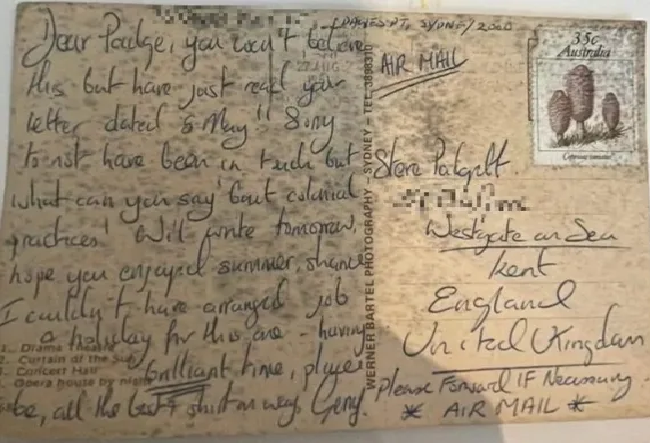 DAWES PT, SYDNEY 2000
Dear Padge, you won't believe
this but have just read your
letter dated 5 May"! Sorry
to not have been in touch but
what can you say 'bout colonial
practices! Will write tomorrow,
hope you enjoyed summer, shame
I couldn't have arranged job
& holiday for this one - having
brilliant time,
be, all the best & shirt on way Gerry.
1. Drama Theatre
2. Curtain of the Sun
3. Concert Hall
4. Opera house by night
WERNER BARTEL PHOTOGRAPHY – SYDNEY – TEL.
27 AUG
AIR MAIL
35c
Australia
Coprinus comatus
Steve Padgett.
Westgate on Sea
Kent
England
United Kingdom
Please Forward IF Necessary -
* AIR MAIL *